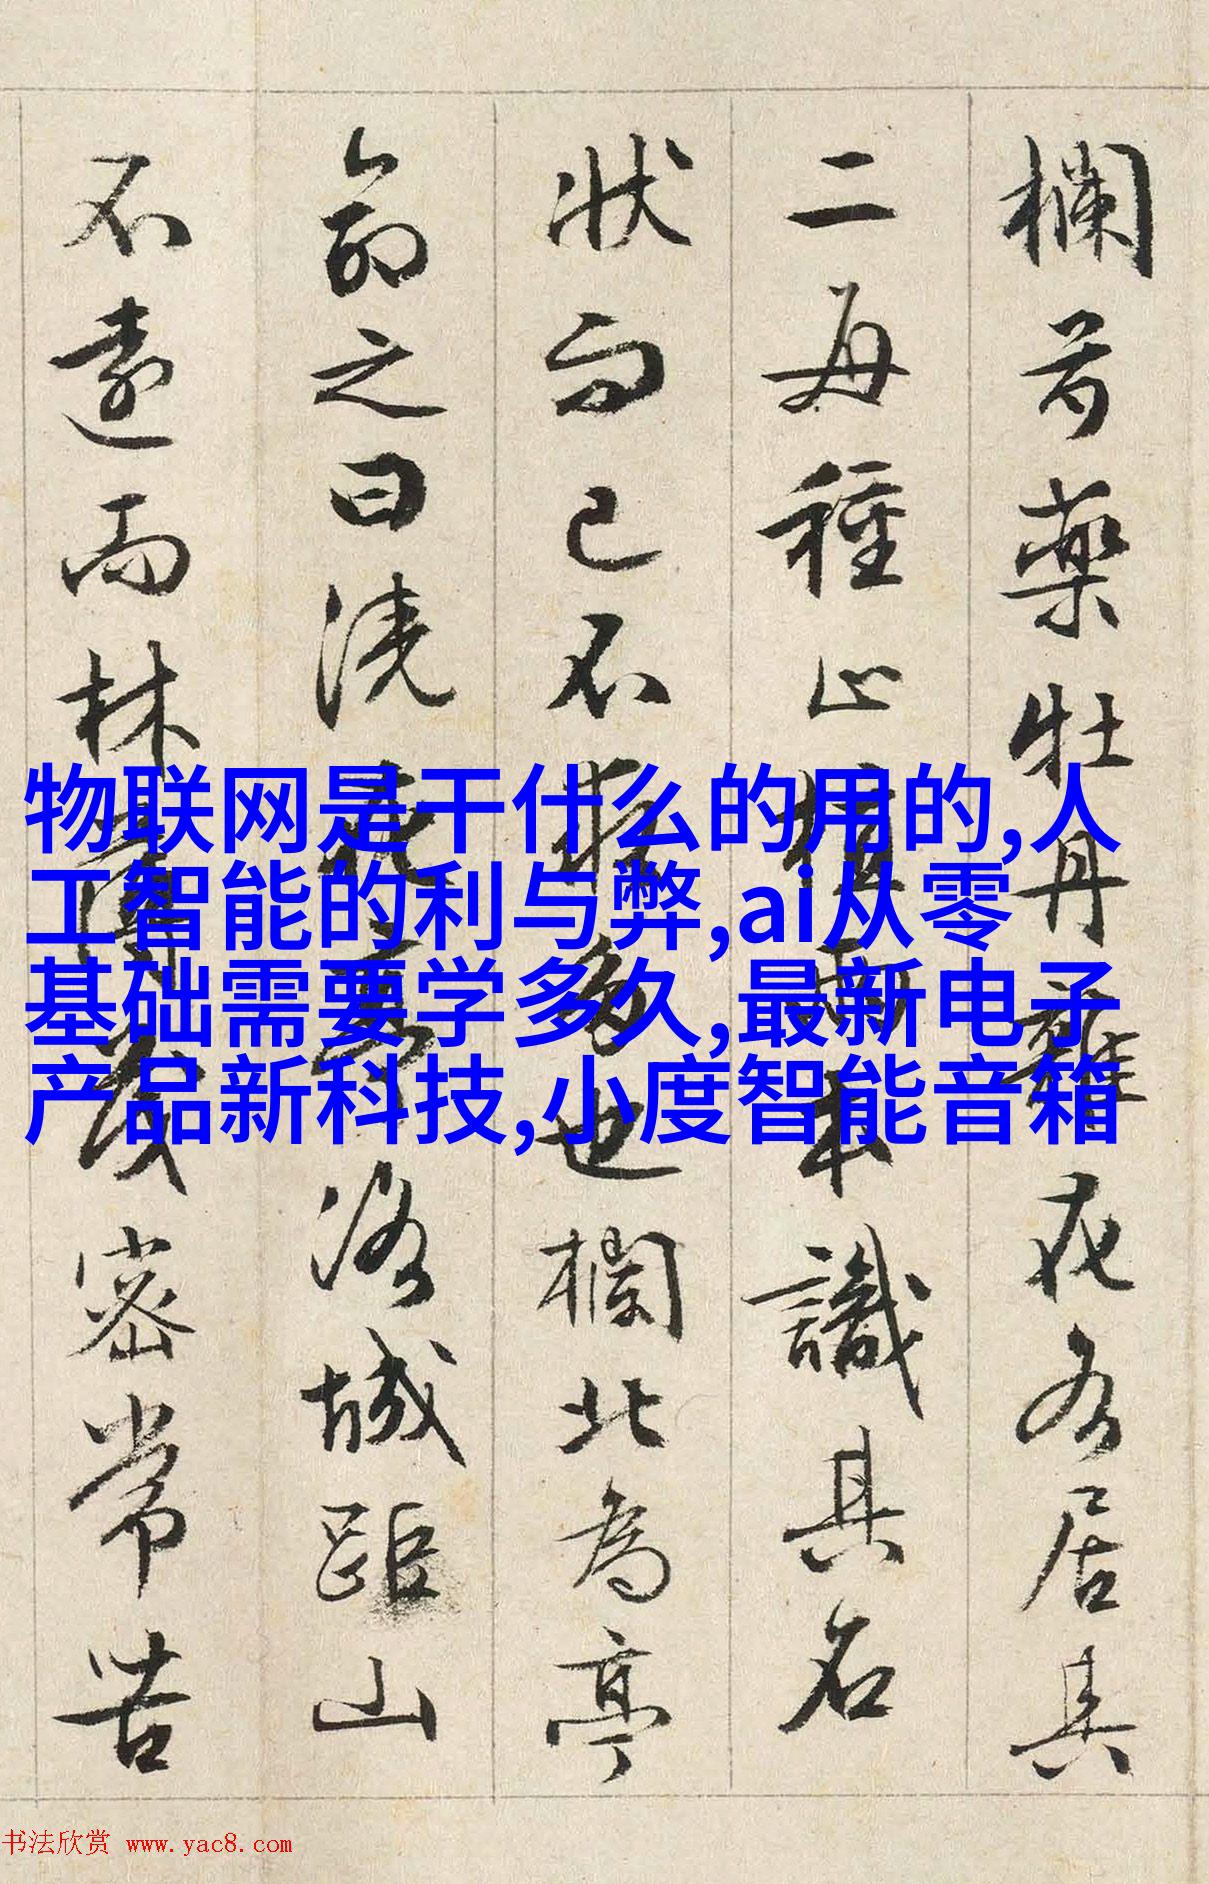 欄芍藥牡丹雜花各居其
二每種止植兩本識其名
狀而已不求多也欄北為亭
命之曰澆花亭洛城距山
不遠而林薄茂密常苦
物联网是干什么的用的,人
工智能的利与弊,ai从零
基础需要学多久,最新电子
产品新科技,小度智能音箱
书法欣赏 www.yac8.com